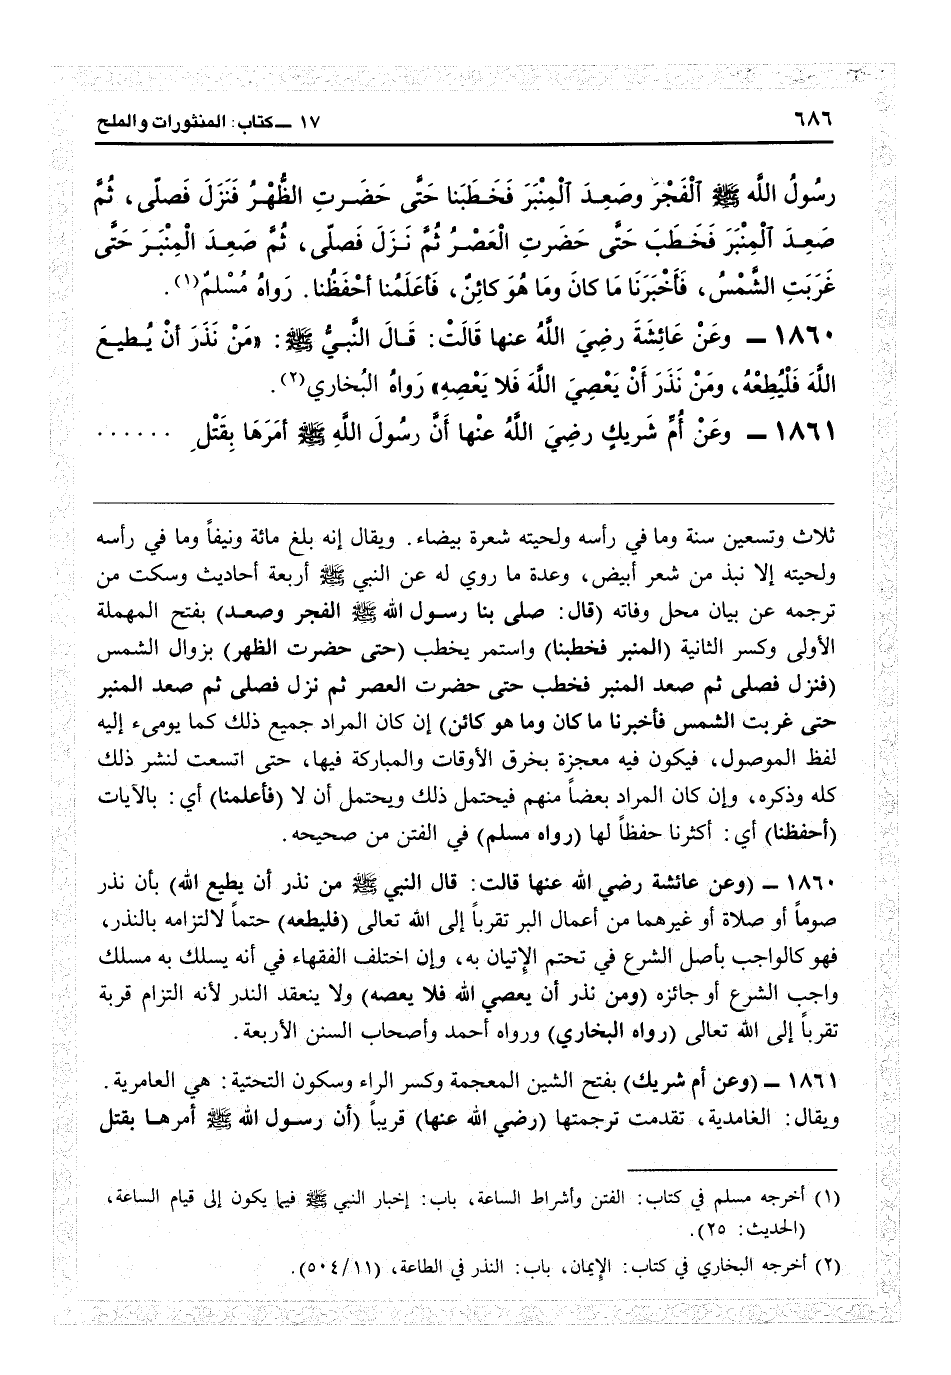 ٦٨٦
١٧ ــ كتاب: المنثورات والملح
رسُولُ اللَّه ﷺ ٱلْفَجْرَ وصَعِدَ ٱلْمِنْبَرَ فَخَطَبَنا حَتَّى حَضَرتِ الظُّهْرُ فَنَزَلَ فَصلّى، ثُمَّ
صَعِدَ ٱلْمِنْبَرَ فَخَطَبَ حَتَّى حَضَرتِ الْعَصْرُ ثُمَّ نَزَلَ فَصلّى، ثُمَّ صَعِدَ الْمِنْبَرَ حَتَّى
غَرَبَتِ الشَّمْسُ، فَأَخْبَرَنَا مَا كانَ ومَا هُوَ كائِنٌ، فَأعْلَمُنا أحْفَظُنا. رَواهُ مُسْلمٌ(١).
١٨٦٠ ــ وعَنْ عَائِشَةَ رضِيَ اللَّهُ عنها قَالَتْ: قَالَ النَّبيُّ ﷺ: «مَنْ نَذَرَ أنْ يُطيعَ
اللَّهَ فَلْيُطِعْهُ، ومَنْ نَذَرَ أَنْ يَعْصِيَ اللَّهَ فَلا يَعْصِهِ» رَواهُ البُخاري(٢).
١٨٦١ ــ وعَنْ أُمِّ شَريكٍ رضِيَ اللَّهُ عنْها أَنَّ رسُولَ اللَّهِ ﷺ أمَرَهَا بِقَتْلِ ......
ثلاث وتسعين سنة وما في رأسه ولحيته شعرة بيضاء. ويقال إنه بلغ مائة ونيفاً وما في رأسه
ولحيته إلا نبذ من شعر أبيض، وعدة ما روي له عن النبي ﷺ أربعة أحاديث وسكت من
ترجمه عن بيان محل وفاته (قال: صلى بنا رسول الله ﷺ الفجر وصعد) بفتح المهملة
الأولى وكسر الثانية (المنبر فخطبنا) واستمر يخطب (حتى حضرت الظهر) بزوال الشمس
(فنزل فصلى ثم صعد المنبر فخطب حتى حضرت العصر ثم نزل فصلى ثم صعد المنبر
حتى غربت الشمس فأخبرنا ما كان وما هو كائن) إن كان المراد جميع ذلك كما يومىء إليه
لفظ الموصول، فيكون فيه معجزة بخرق الأوقات والمباركة فيها، حتى اتسعت لنشر ذلك
كله وذكره، وإن كان المراد بعضاً منهم فيحتمل ذلك ويحتمل أن لا (فأعلمنا) أي: بالآيات
(أحفظنا) أي: أكثرنا حفظاً لها (رواه مسلم) في الفتن من صحيحه.
١٨٦٠ ــ (وعن عائشة رضي الله عنها قالت: قال النبي ﷺ من نذر أن يطيع الله) بأن نذر
صوماً أو صلاة أو غيرهما من أعمال البر تقرباً إلى الله تعالى (فليطعه) حتماً لالتزامه بالنذر،
فهو كالواجب بأصل الشرع في تحتم الإتيان به، وإن اختلف الفقهاء في أنه يسلك به مسلك
واجب الشرع أو جائزه (ومن نذر أن يعصي الله فلا يعصه) ولا ينعقد الندر لأنه التزام قربة
تقرباً إلى الله تعالى (رواه البخاري) ورواه أحمد وأصحاب السنن الأربعة.
١٨٦١ ــ (وعن أم شريك) بفتح الشين المعجمة وكسر الراء وسكون التحتية: هي العامرية.
ويقال: الغامدية، تقدمت ترجمتها (رضي الله عنها) قريباً (أن رسول الله ﷺ أمرها بقتل
(١) أخرجه مسلم في كتاب: الفتن وأشراط الساعة، باب: إخبار النبي ﷺ فيما يكون إلى قيام الساعة،
(الحديث: ٢٥).
(٢) أخرجه البخاري في كتاب: الإيمان، باب: النذر في الطاعة، (٥٠٤/١١).